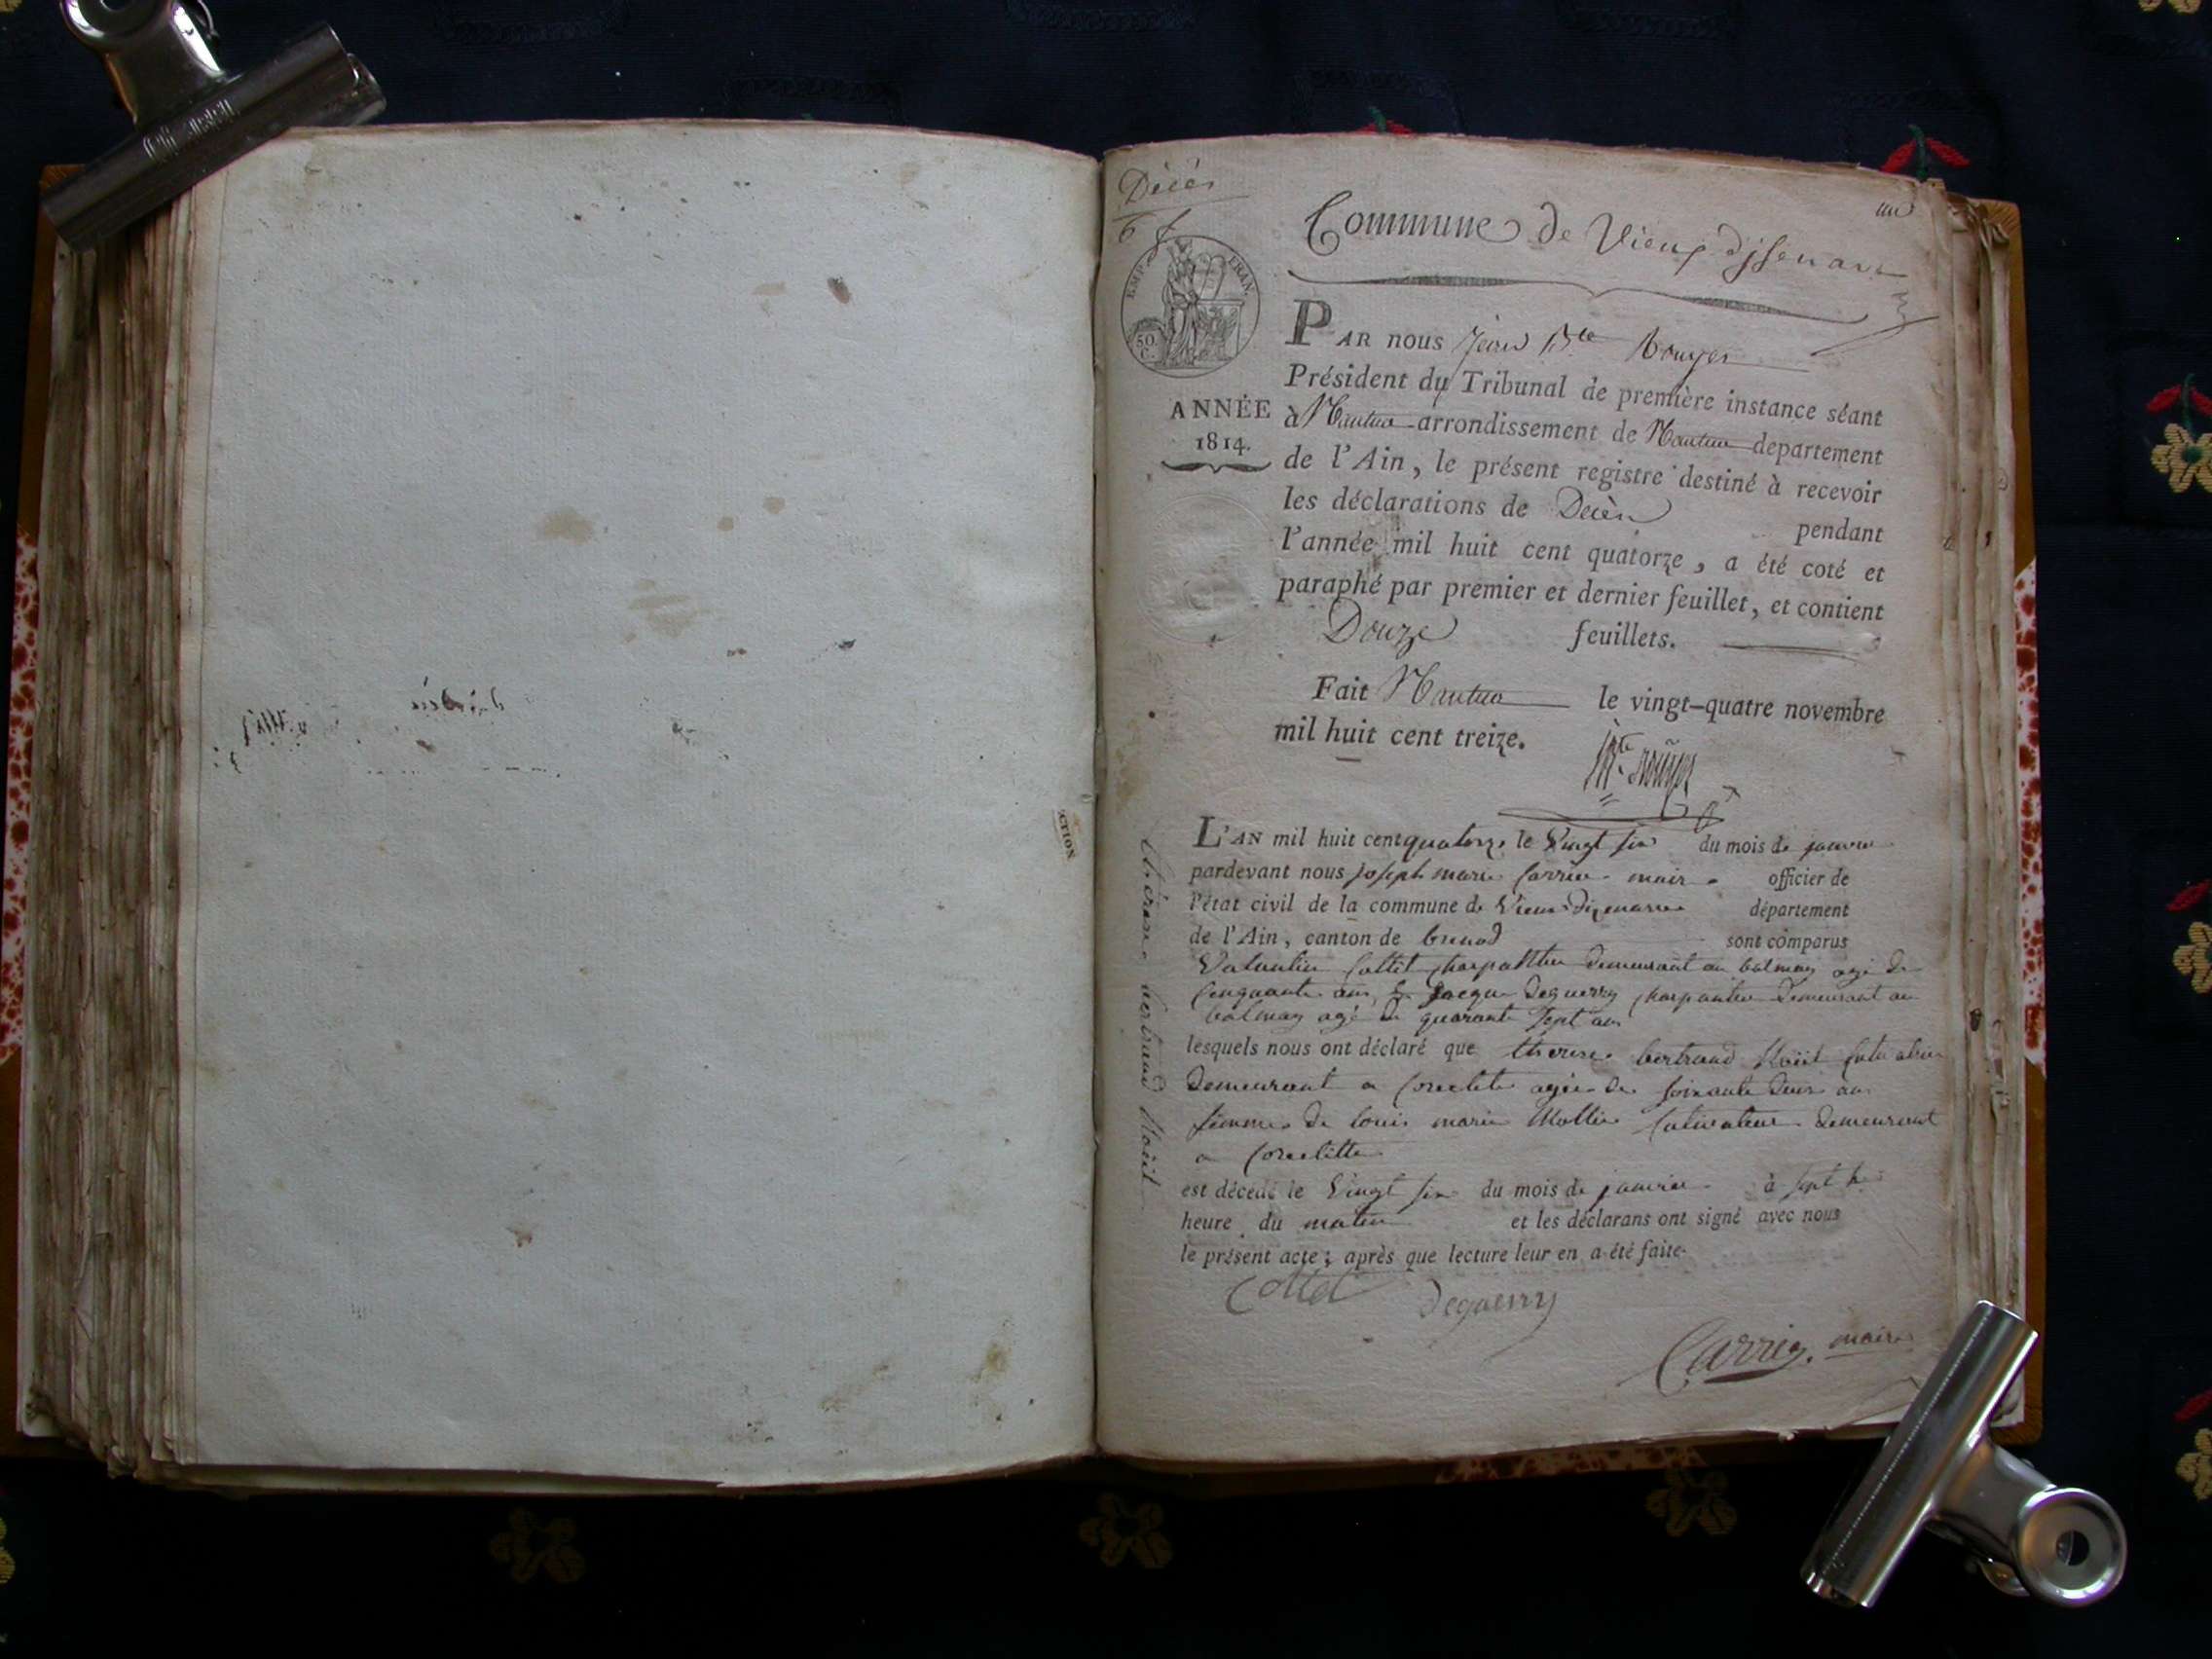 Décès
6 f
Commune de Vieux d'jsenave
EMP. FRAN.
50 C.
ANNÉE
1814.
PAR nous Jean Bte Rouyer
Président du Tribunal de première instance séant
à Nantua arrondissement de Nantua departement
de l'Ain, le présent registre destiné à recevoir
les déclarations de Décès pendant
l'année mil huit cent quatorze, a été coté et
paraphé par premier et dernier feuillet, et contient
Douze feuillets.
Fait Nantua le vingt-quatre novembre
mil huit cent treize.
L'AN mil huit cent quatorze le Vingt six du mois de janvier
pardevant nous joseph marie Carrier maire officier de
l'état civil de la commune de Vieux dizenave département
de l'Ain, canton de brenod sont comparus
Valentin Cottet charpantier demeurant au balmay agé de
Cinquante ans, & Jacque Deguerry charpantier demeurant au
balmay agé de quarante sept ans
lesquels nous ont déclaré que therese bertrand
demeurant a agée de soixante deux ans
femme de louis marie Mollie Cultivateur demeurant
a
est décédé le Vingt six du mois de janvier à sept h
heure du matin et les déclarans ont signé avec nous
le présent acte; après que lecture leur en a été faite.
Cottet deguerry
Carrier, maire
therese bertrand
CTION